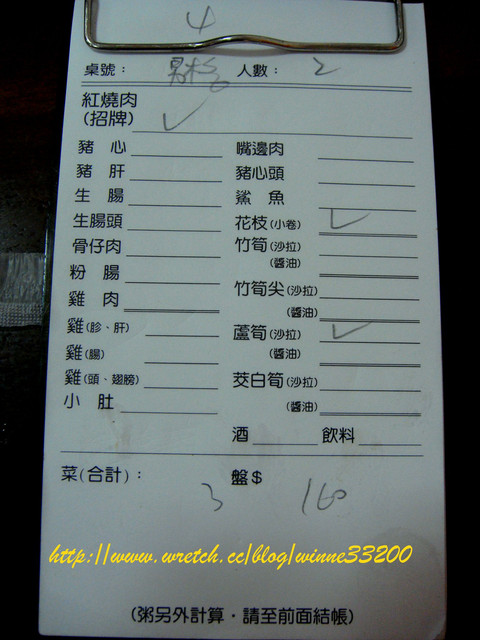 4
桌號： 人數： 2
紅燒肉
(招牌) ✓
豬 心 嘴邊肉
豬 肝 豬心頭
生 腸 鯊 魚
生腸頭 花枝(小卷) ✓
骨仔肉 竹筍(沙拉)
(醬油)
粉 腸 竹筍尖(沙拉)
雞 肉 (醬油)
雞(胗、肝) 蘆筍(沙拉) ✓
雞(腸) (醬油)
雞(頭、翅膀) 茭白筍(沙拉)
小 肚 (醬油)
酒 飲料
菜(合計)： 3 盤$ 160
http://www.wretch.cc/blog/winne33200
(粥另外計算・請至前面結帳)